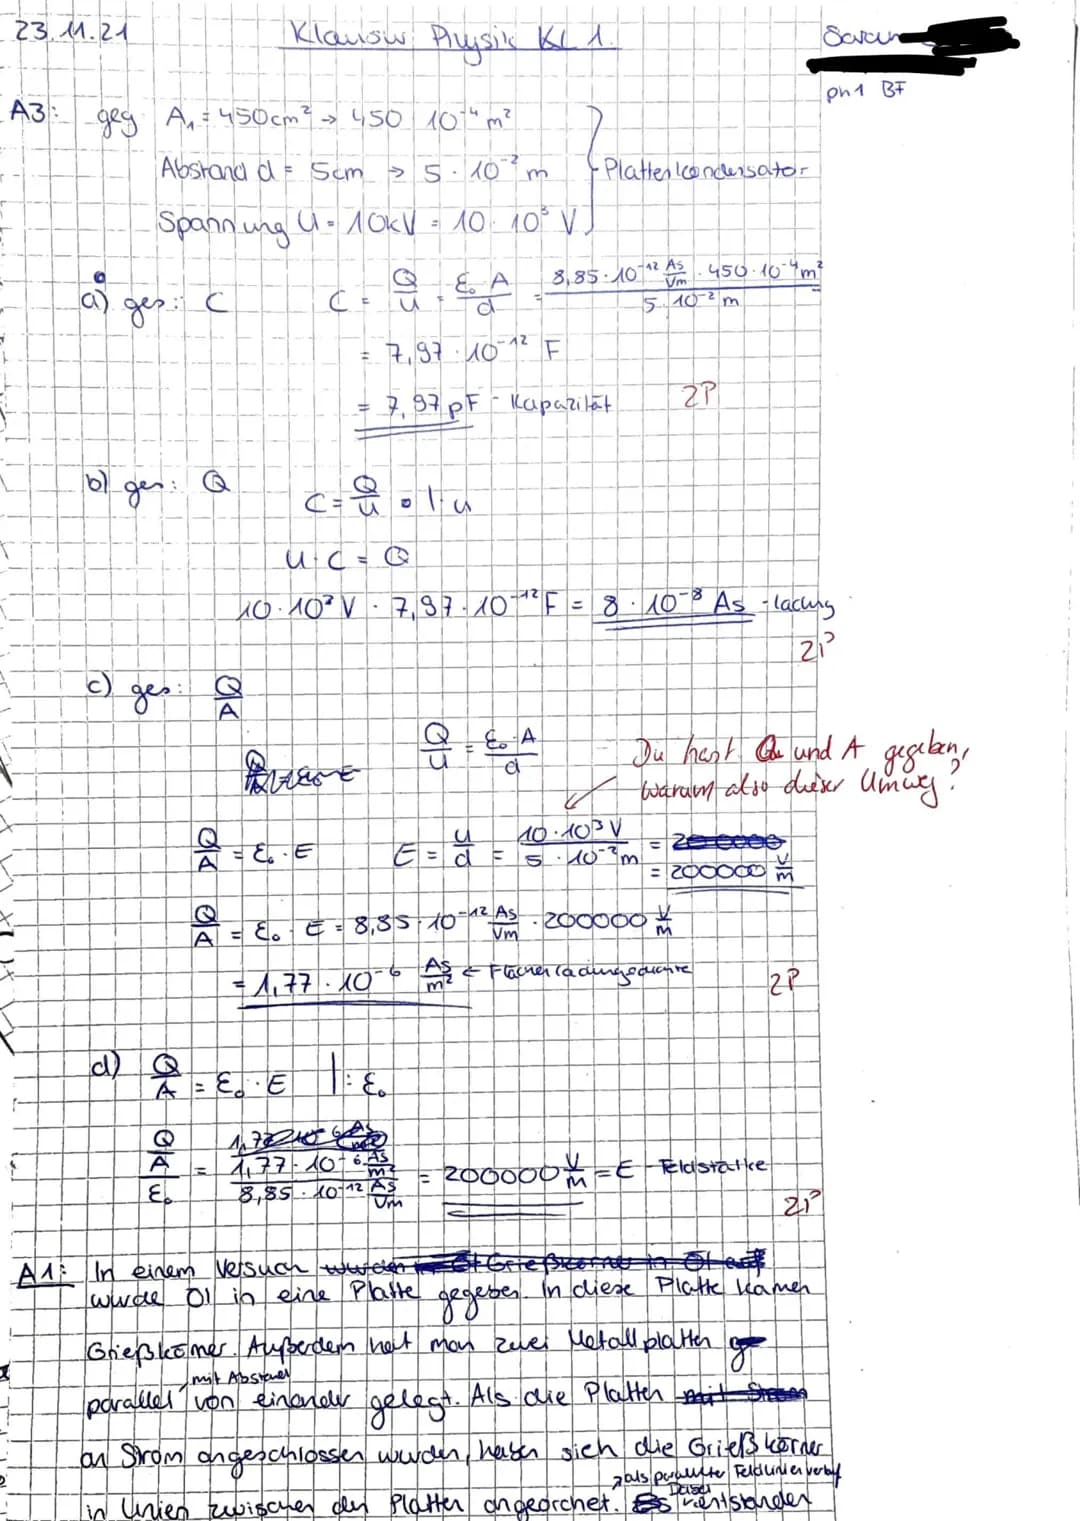 23.11.21 Klausur Physik KL 1. Saram
ph1 BF
A3: geg A₁ = 450cm² → 450 10⁻⁴ m²
Abstand d = 5cm → 5 · 10⁻² m } Plattenkondensator
Spannung U = 10kV = 10 · 10³ V
a) ges: C C = Q/U = ε₀ A/d = 8,85 · 10⁻¹² As/Vm · 450 · 10⁻⁴ m² / 5 · 10⁻² m
= 7,97 · 10⁻¹² F
= 7,97 pF - Kapazität 2P
b) ges: Q C = Q/U | · U
U · C = Q
10 · 10³ V · 7,97 · 10⁻¹² F = 8 · 10⁻⁸ As - ladung
2P
c) ges: Q/A
Q/U = ε₀ · A/d Du hast Q und A gegeben,
warum also dieser Umweg?
Q/A = ε₀ · E E = U/d = 10 · 10³ V / 5 · 10⁻² m
= 200000 V/m
Q/A = ε₀ · E = 8,85 · 10⁻¹² As/Vm · 200000 V/m
= 1,77 · 10⁻⁶ As/m² ← Flächenladungsdichte 2P
d) Q/A = ε₀ · E | : ε₀
Q/A / ε₀ = 1,77 · 10⁻⁶ As/m² / 8,85 · 10⁻¹² As/Vm = 200000 V/m = E - Feldstärke
2P
A1: In einem Versuch wurden Grießkörner in Öl auf
wurde Öl in eine Platte gegeben. In diese Platte kamen
Grießkörner. Außerdem hat man zwei Metallplatten
mit Abstand
parallel von einander gelegt. Als die Platten mit Strom
an Strom angeschlossen wurden, haben sich die Grießkörner
als parallele Feldlinien
in Linien zwischen den Platten angeordnet. Es Dabei entstanden